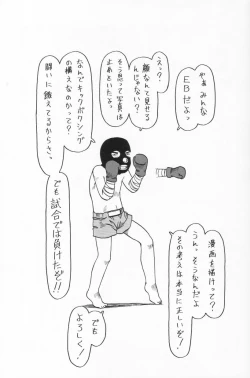 やぁ みんな
EBだよっ
えっ？
顔なんて見せる
んじゃない？
そう思って写真は
止めといたよ
なんでキックボクシング
の構えなのかって？
闘いに鍛えてるからさ。
でも試合では負けたぞ!!
漫画を描けって？
うん。そうなんだよ
その考えは本当に正しいぞ！
でも
よろしく！